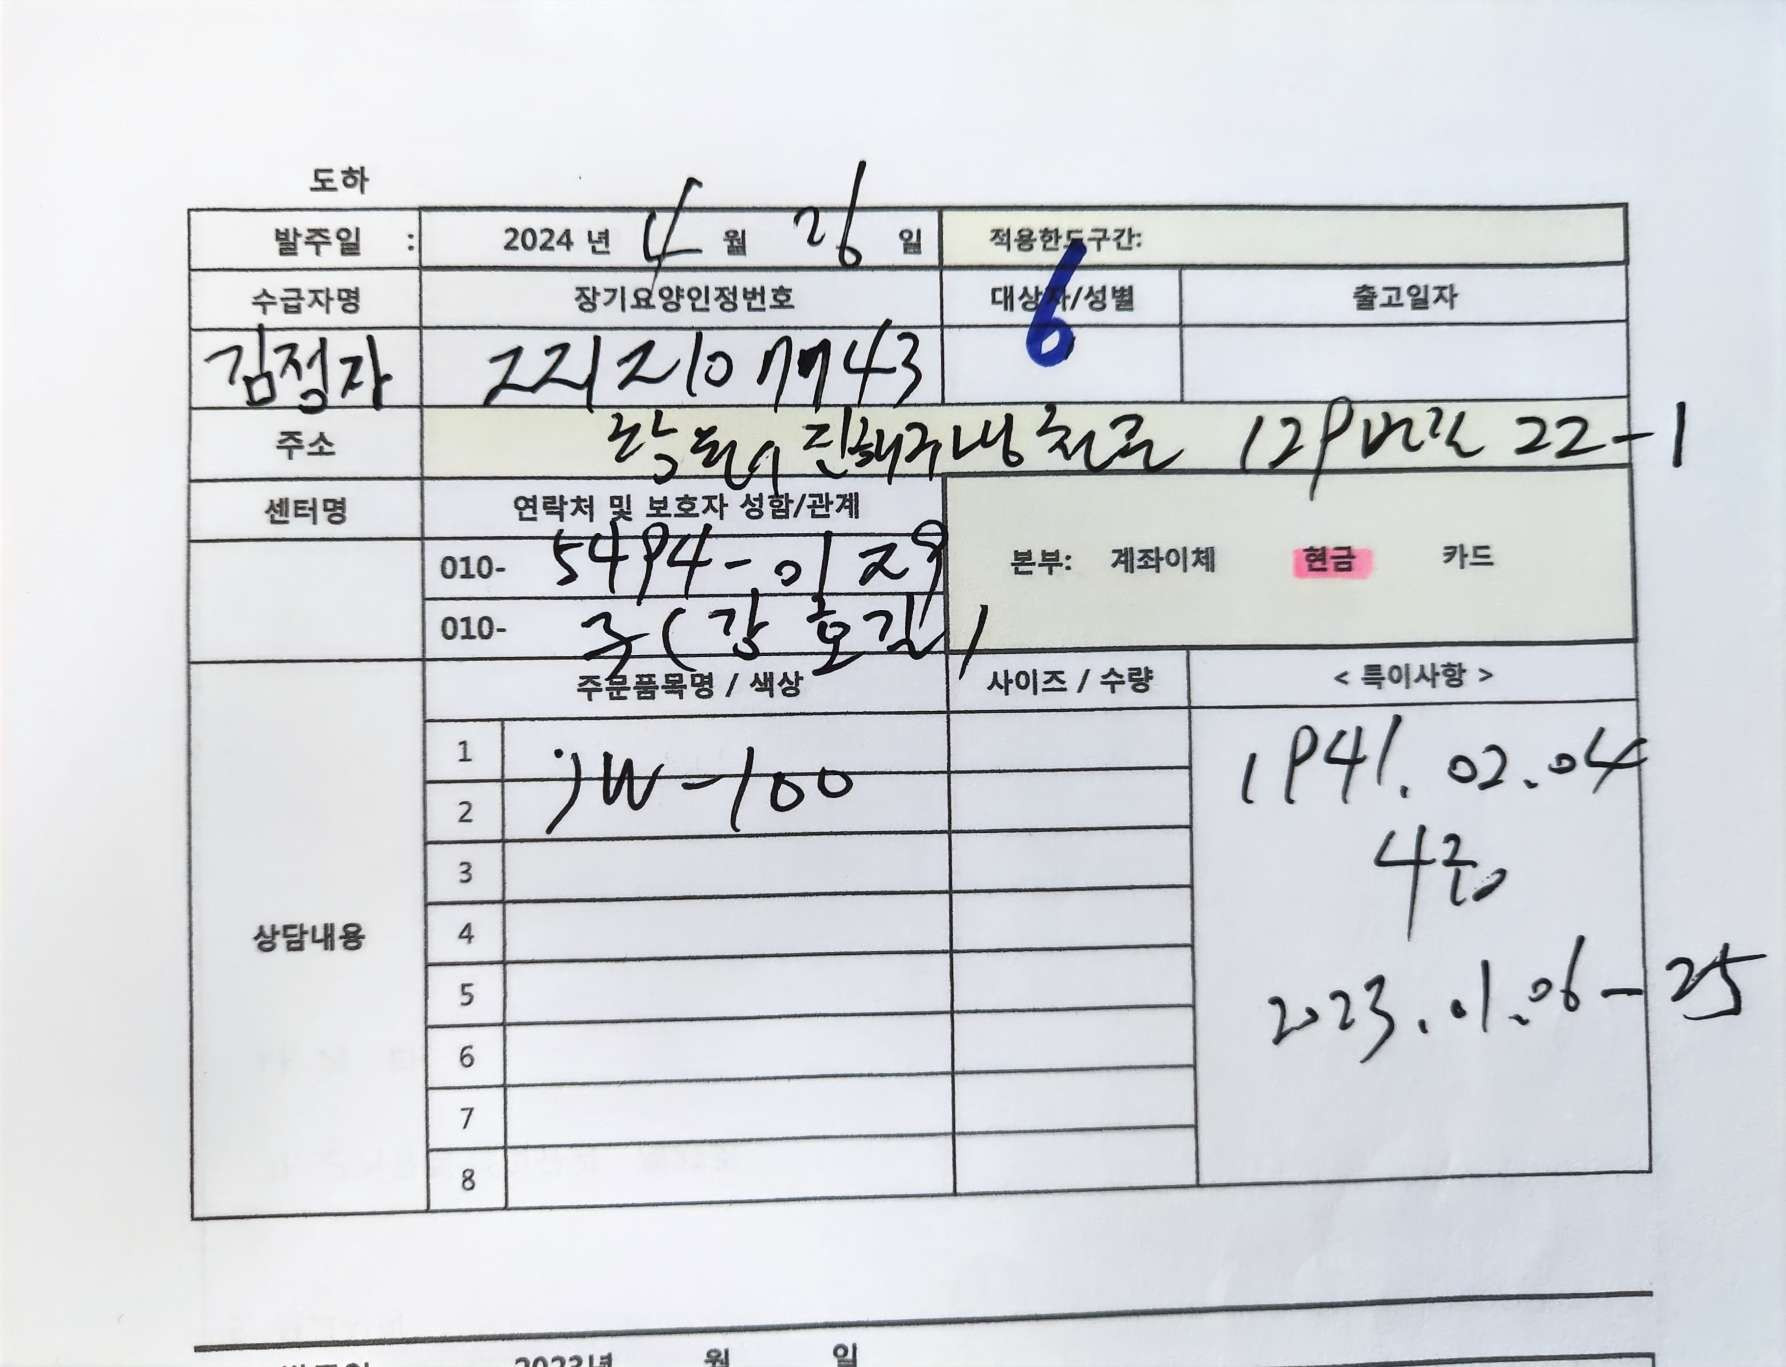 도하
발주일 : 2024 년 4 월 26 일 적용한도구간:
수급자명 장기요양인정번호 대상자/성별 출고일자
김정자 22121077743 6
주소 진해구 냉천로 129번길 22-1
센터명 연락처 및 보호자 성함/관계
010- 5494-0129
본부: 계좌이체 현금 카드
010- 주(강호길)
주문품목명 / 색상 사이즈 / 수량 < 특이사항 >
상담내용
1 jw-100
2
3
4
5
6
7
8
1941.02.04
4등
2023.01.06-25
2023년 월 일